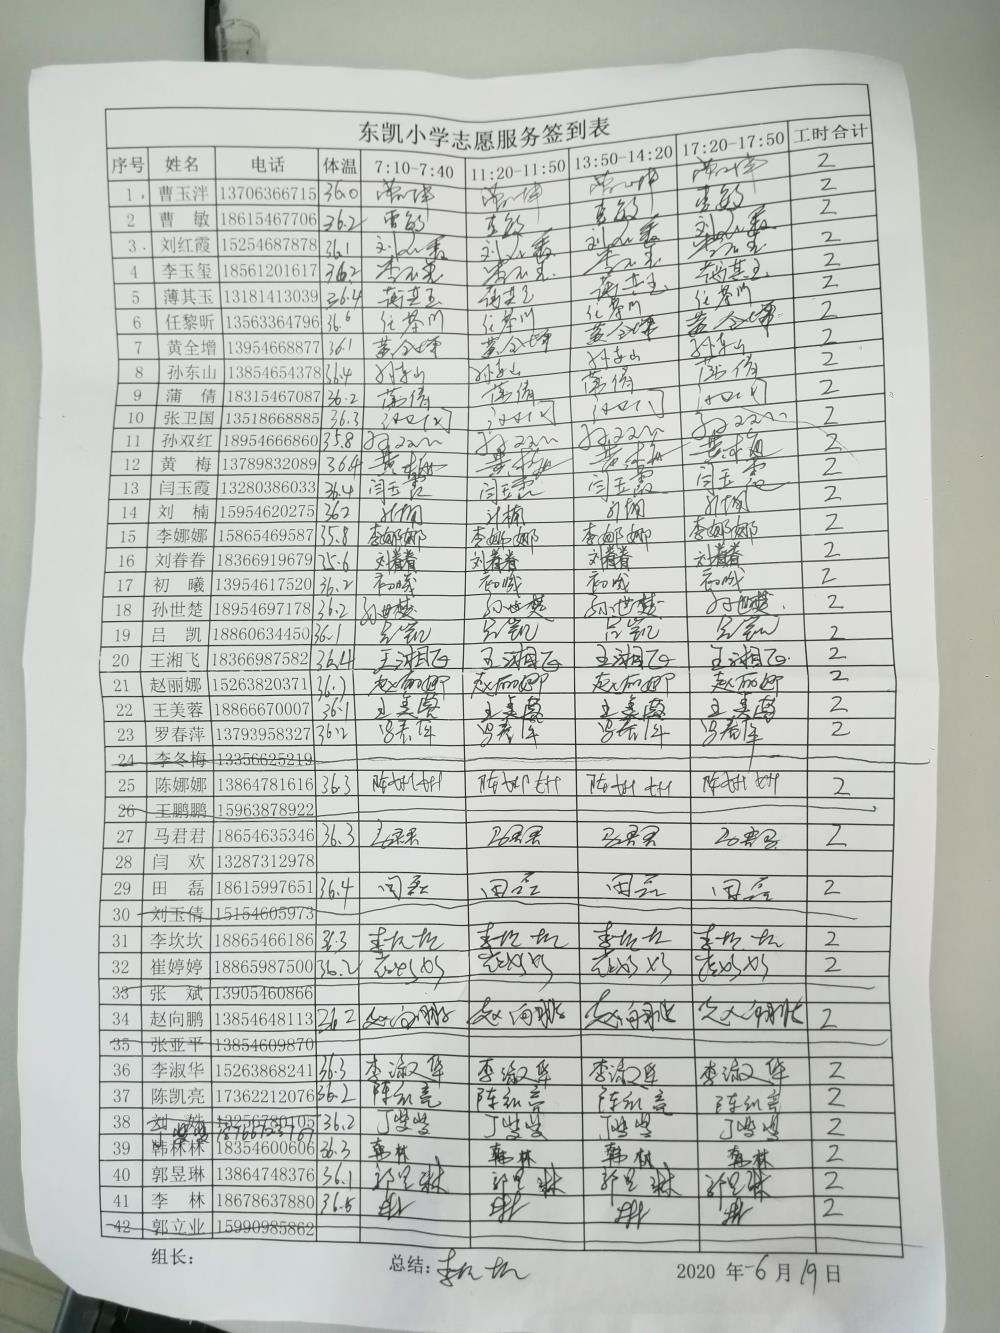 东凯小学志愿服务签到表
序号 姓名 电话 体温 7:10-7:40 11:20-11:50 13:50-14:20 17:20-17:50 工时合计
1 曹玉泮 13706366715 36.0 2
2 曹 敏 18615467706 36.2 曹敏 曹敏 曹敏 曹敏 2
3 刘红霞 15254687878 36.1 刘红霞 刘红霞 刘红霞 刘红霞 2
4 李玉玺 18561201617 36.2 2
5 薄其玉 13181413039 36.4 薄其玉 薄其玉 薄其玉 薄其玉 2
6 任黎昕 13563364796 36.6 2
7 黄全增 13954668877 36.1 黄全增 黄全增 黄全增 黄全增 2
8 孙东山 13854654378 36.4 孙东山 孙东山 孙东山 孙东山 2
9 蒲 倩 18315467087 36.2 蒲倩 蒲倩 蒲倩 蒲倩 2
10 张卫国 13518668885 36.3 2
11 孙双红 18954666860 35.8 孙双红 孙双红 孙双红 孙双红 2
12 黄 梅 13789832089 36.4 黄梅 黄梅 黄梅 黄梅 2
13 闫玉霞 13280386033 36.4 闫玉霞 闫玉霞 闫玉霞 闫玉霞 2
14 刘 楠 15954620275 36.2 刘楠 刘楠 刘楠 刘楠 2
15 李娜娜 15865469587 35.8 李娜娜 李娜娜 李娜娜 李娜娜 2
16 刘眷眷 18366919679 35.6 刘眷眷 刘眷眷 刘眷眷 刘眷眷 2
17 初 曦 13954617520 36.2 初曦 初曦 初曦 初曦 2
18 孙世楚 18954697178 36.2 孙世楚 孙世楚 孙世楚 孙世楚 2
19 吕 凯 18860634450 36.1 吕凯 吕凯 吕凯 吕凯 2
20 王湘飞 18366987582 36.4 王湘飞 王湘飞 王湘飞 王湘飞 2
21 赵丽娜 15263820371 36.2 赵丽娜 赵丽娜 赵丽娜 赵丽娜 2
22 王美蓉 18866670007 36.1 王美蓉 王美蓉 王美蓉 王美蓉 2
23 罗春萍 13793958327 36.2 罗春萍 罗春萍 罗春萍 罗春萍 2
24 李冬梅 13356625219
25 陈娜娜 13864781616 36.3 陈娜娜 陈娜娜 陈娜娜 陈娜娜 2
26 王鹏鹏 15963878922
27 马君君 18654635346 36.3 马君君 马君君 马君君 马君君 2
28 闫 欢 13287312978
29 田 磊 18615997651 36.4 田磊 田磊 田磊 田磊 2
30 刘玉倩 15154605973
31 李坎坎 18865466186 36.3 李坎坎 李坎坎 李坎坎 李坎坎 2
32 崔婷婷 18865987500 36.2 2
33 张 斌 13905460866
34 赵向鹏 13854648113 36.2 赵向鹏 赵向鹏 赵向鹏 赵向鹏 2
35 张亚平 13854609870
36 李淑华 15263868241 36.3 李淑华 李淑华 李淑华 李淑华 2
37 陈凯亮 17362212076 36.2 陈凯亮 陈凯亮 陈凯亮 陈凯亮 2
38 36.2 丁莹莹 丁莹莹 丁莹莹 丁莹莹 2
39 韩林林 18354600606 36.3 韩林 韩林 韩林 韩林 2
40 郭昱琳 13864748376 36.1 郭昱琳 郭昱琳 郭昱琳 郭昱琳 2
41 李 林 18678637880 36.5 2
42 郭立业 15990985862
组长: 总结: 李坎坎 2020 年 6 月 19 日